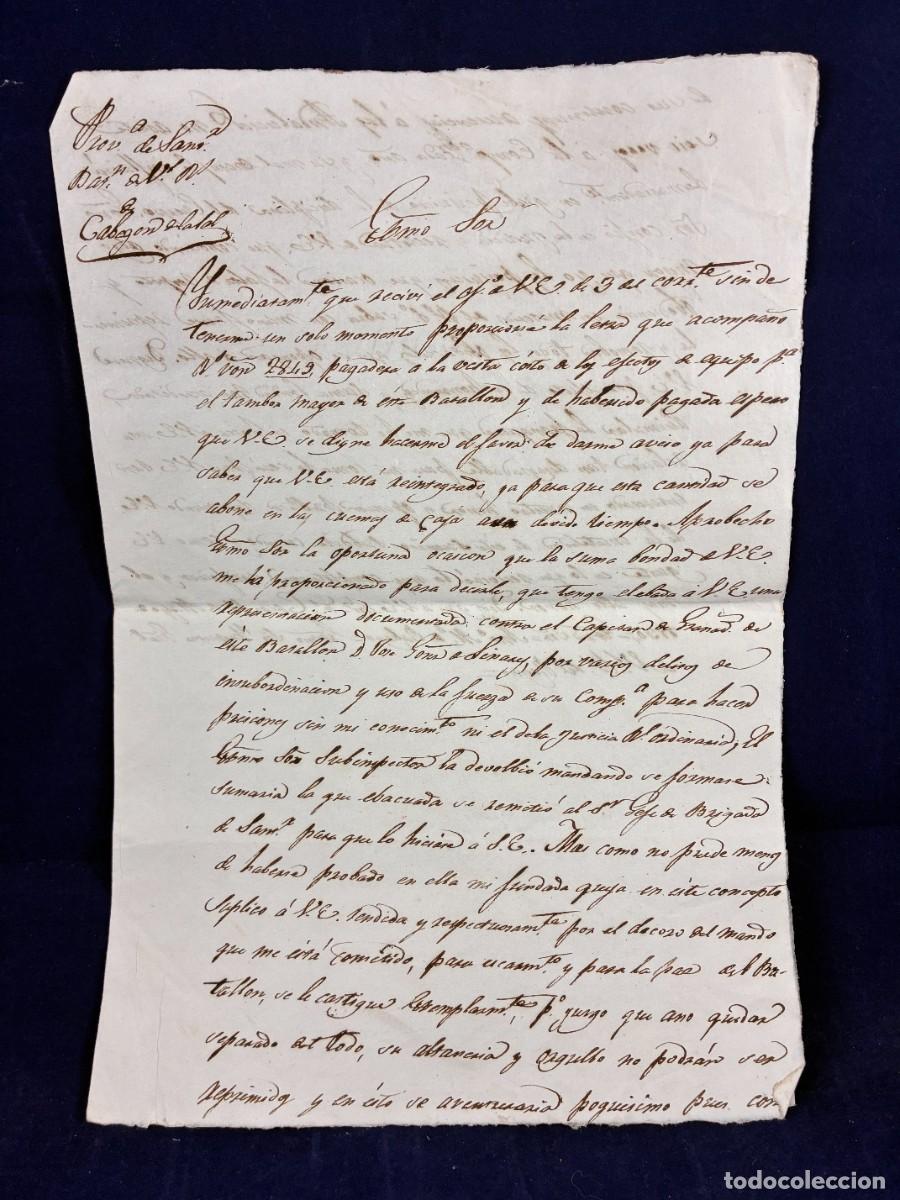 Prov.ª de San.r
Bat.n de V.s R.s
de
Cabezon de la Sal
Exmo Sor
Ynmediatam.te que recivi el of.o de V.E. de 3 del corr.te sin de
tenerme un solo momento proporcioné la letra que acompaño
R.s von 2849, pagadera á la vista costo de los efectos de equipo p.ª
el tambor mayor de éste Batallon y de haberse pagada espero
que V.E. se digne hacerme el favor de darme aviso ya para
saber que V.E. está reintegrado, ya para que esta cantidad se
abone en las cuentas de caja a su devido tiempo. Aprobecho
Exmo Sor la oportuna ocasion que la suma bondad de V.E.
me há proporcionado para decirle, que tengo elebada á V.E. una
representacion documentada contra el Capitan de Granad.s de
este Batallon D. Jose Gonz de Linares, por varios delitos de
insubordinacion y uso de la fuerza de su Comp.ª para hacer
prisiones sin mi conocim.to ni el de la Justicia R.l ordinaria; El
Exmo Sor Subinspector la devolbió mandando se formase
sumaria la que ebacuada se remitió al S.r Gefe de Brigada
de San.r para que lo hiciera á S.E. Mas como no puede menos
de haberse probado en ella mi fundada queja en este concepto
suplico á V.E. rendida y respectuosam.te por el decoro del mando
que me está cometido, para escarm.to y para la paz del Ba-
tallon, se le castigue exemplarm.te, p.s juzgo que a no quedar
separado del todo, su altaneria y orgullo no podrán ser
reprimidos y en esto se aventuraria poquisimo pues con
todocoleccion.net